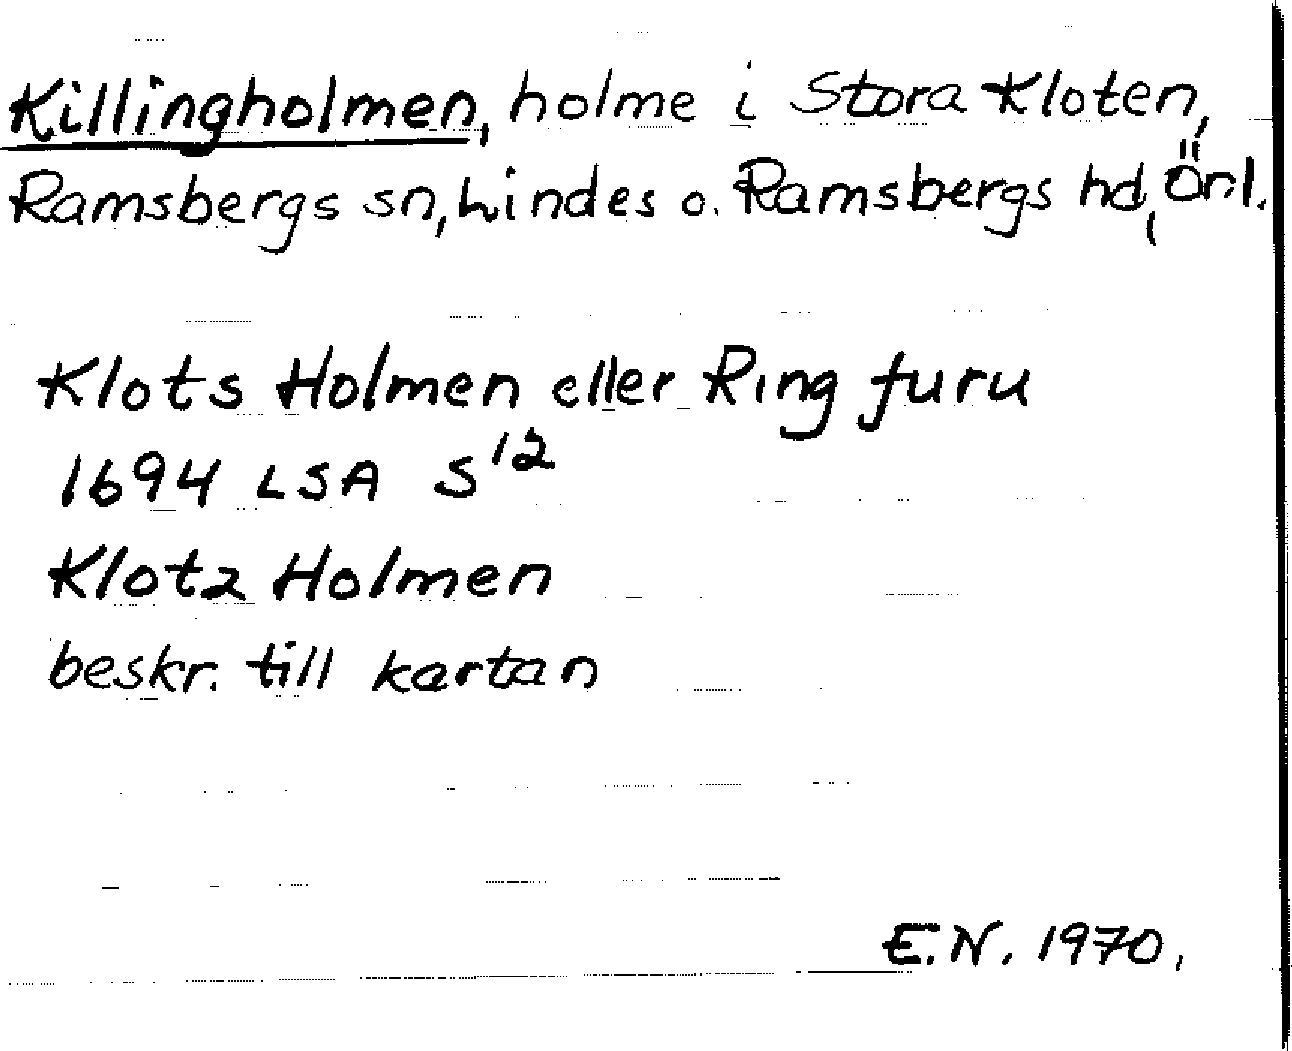 Killingholmen, holme i Stora Kloten,
Ramsbergs sn, Lindes o. Ramsbergs hd, Örl.
Klots Holmen eller Ring furu
1694 LSA S¹²
Klotz Holmen
beskr. till kartan
E.N. 1970.